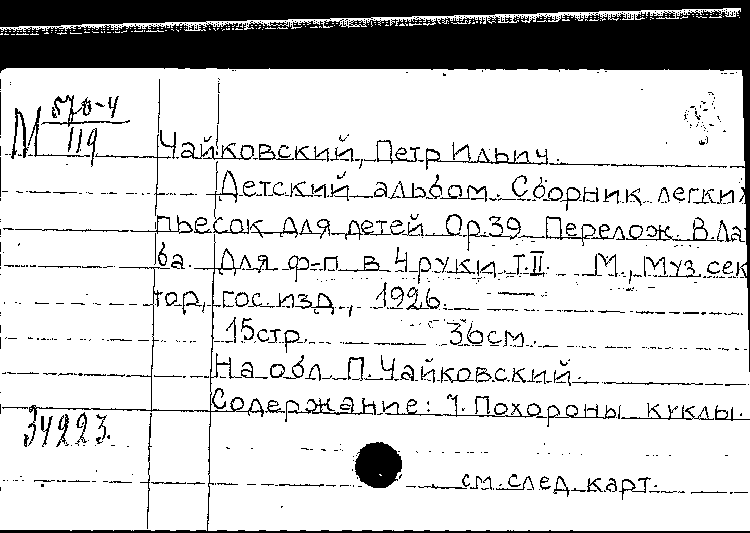 М 570-4
119
Чайковский, Петр Ильич.
Детский альбом. Сборник легких
пьесок для детей Op.39 Перелож. В.Ла
ба. Для ф-п в 4 руки Т.II. М., Муз.сек
тор, гос.изд., 1926.
15стр. 36см.
На обл. П.Чайковский.
Содержание: 7. Похороны куклы.
34223.
см.след.карт.